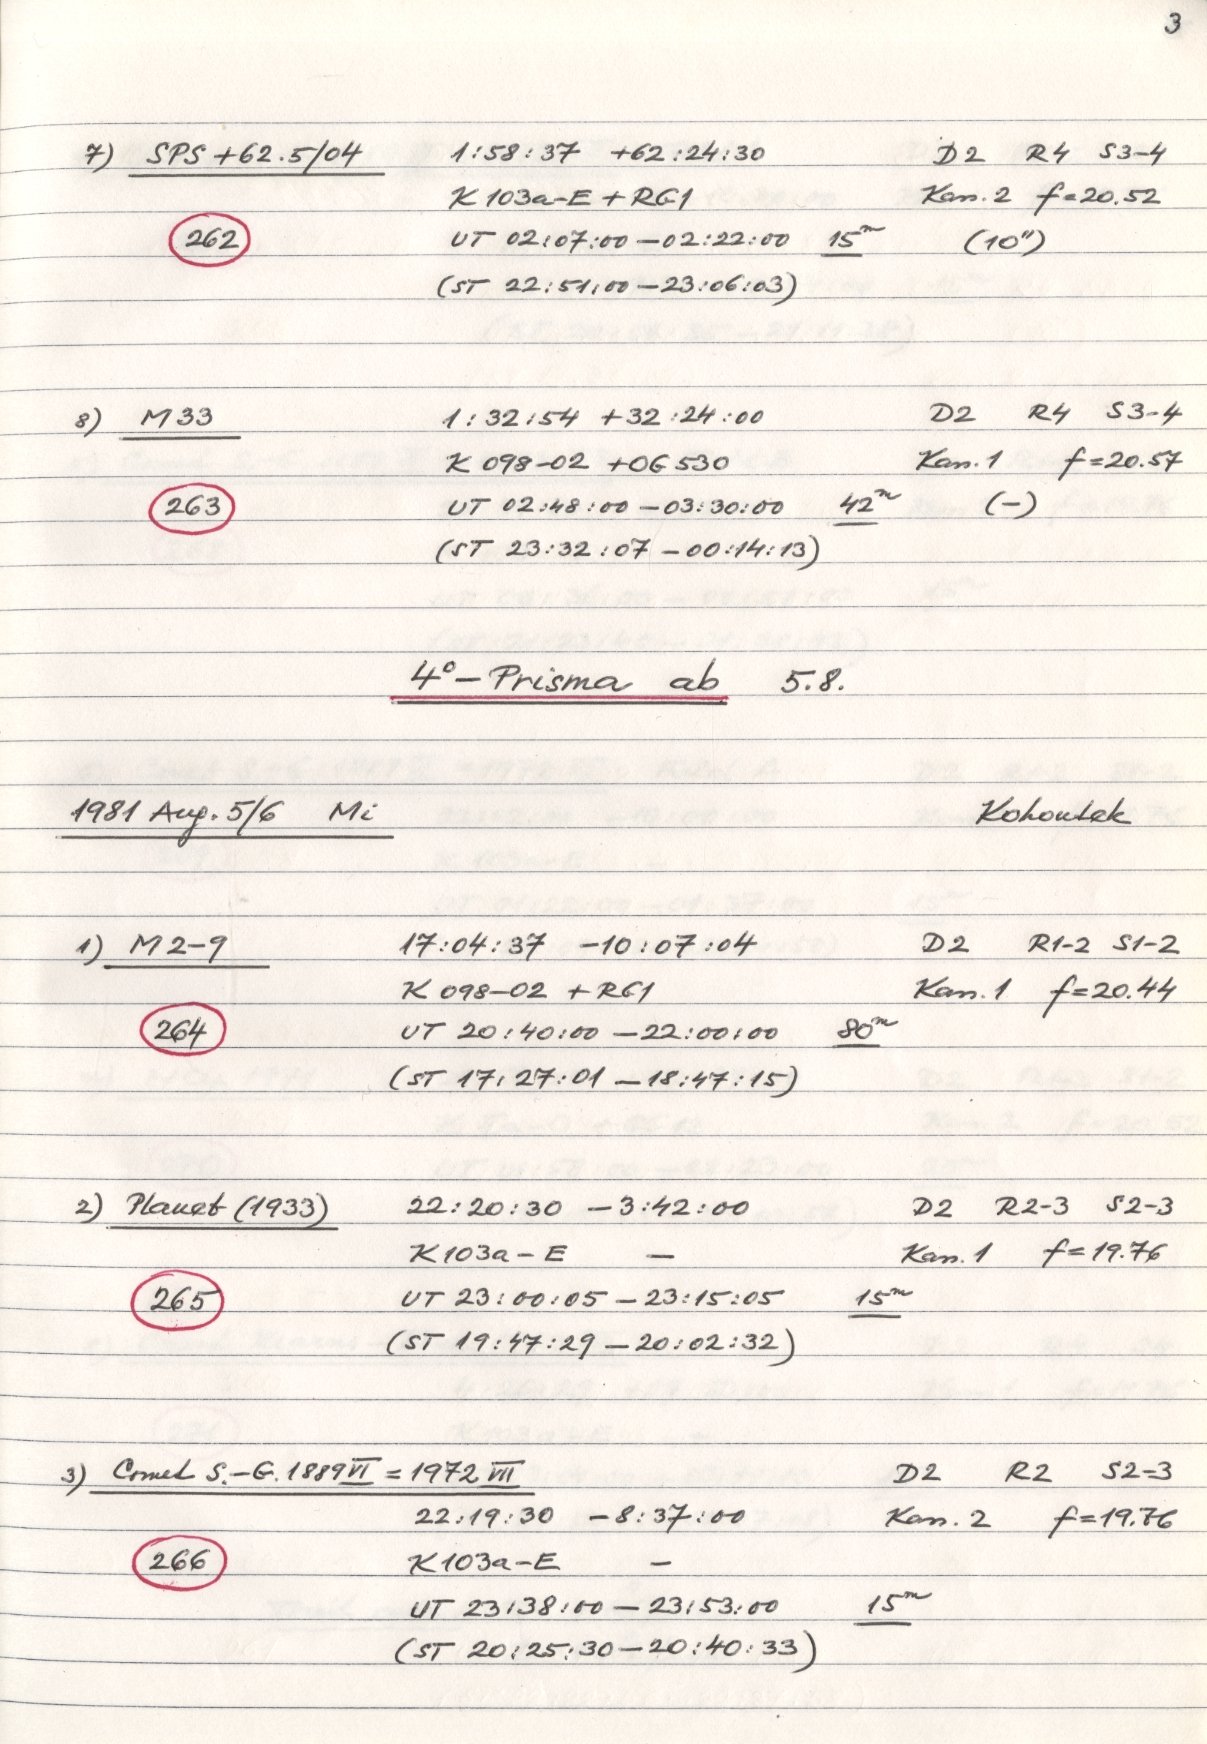 3
7) SPS +62.5/04 1:58:37 +62:24:30 D2 R4 S3-4
K 103a-E + RG1 Kas. 2 f=20.52
262 UT 02:07:00 – 02:22:00 15m (10")
(ST 22:51:00 – 23:06:03)
8) M33 1:32:54 +32:24:00 D2 R4 S3-4
K 098-02 + OG 530 Kas. 1 f=20.57
263 UT 02:48:00 – 03:30:00 42m (-)
(ST 23:32:07 – 00:14:13)
4°- Prisma ab 5.8.
1981 Aug. 5/6 Mi Kohoutek
1) M2-9 17:04:37 -10:07:04 D2 R1-2 S1-2
K 098-02 + RG1 Kas. 1 f=20.44
264 UT 20:40:00 – 22:00:00 80m
(ST 17:27:01 – 18:47:15)
2) Planet (1933) 22:20:30 -3:42:00 D2 R2-3 S2-3
K 103a-E – Kas. 1 f=19.76
265 UT 23:00:05 – 23:15:05 15m
(ST 19:47:29 – 20:02:32)
3) Comet S.-G. 1889 VI = 1972 VII D2 R2 S2-3
22:19:30 -8:37:00 Kas. 2 f=19.76
266 K 103a-E –
UT 23:38:00 – 23:53:00 15m
(ST 20:25:30 – 20:40:33)